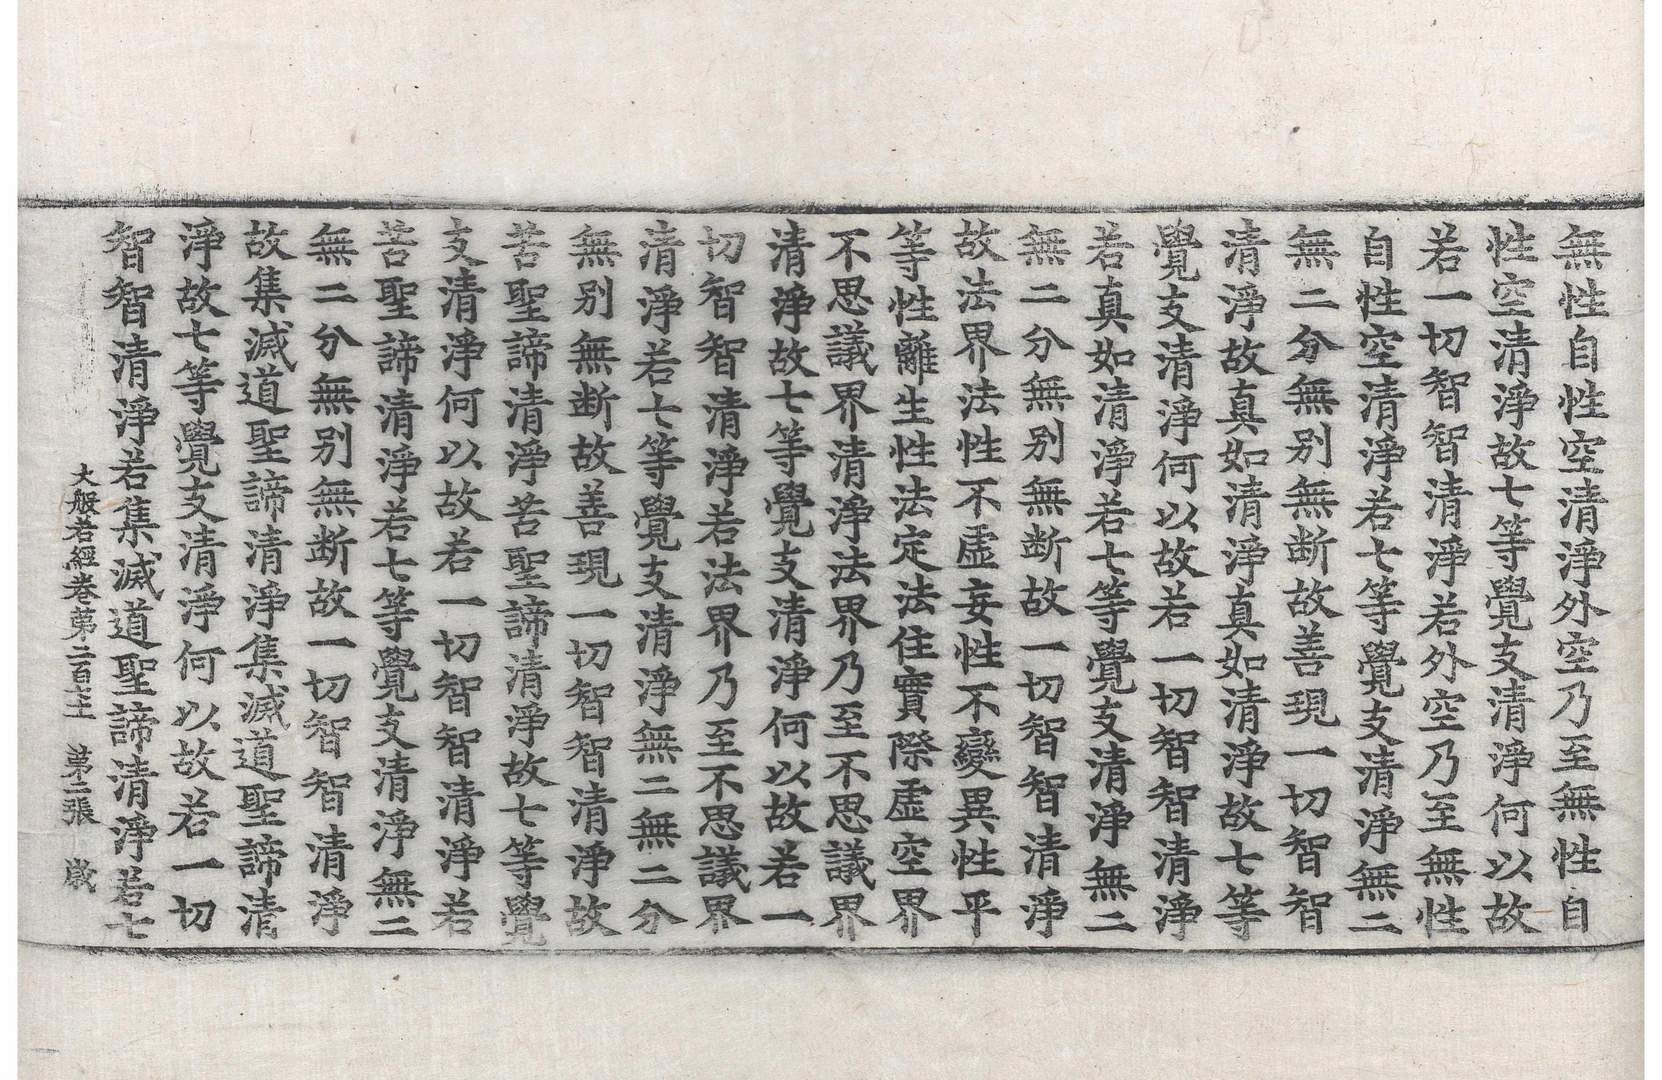 無性自性空清淨外空乃至無性自
性空清淨故七等覺支清淨何以故
若一切智智清淨若外空乃至無性
自性空清淨若七等覺支清淨無二
無二分無別無断故善現一切智智
清淨故真如清淨真如清淨故七等
覺支清淨何以故若一切智智清淨
若真如清淨若七等覺支清淨無二
無二分無別無断故一切智智清淨
故法界法性不虛妄性不變異性平
等性離生性法定法住實際虛空界
不思議界清淨法界乃至不思議界
清淨故七等覺支清淨何以故若一
切智智清淨若法界乃至不思議界
清淨若七等覺支清淨無二無二分
無別無断故善現一切智智清淨故
苦聖諦清淨苦聖諦清淨故七等覺
支清淨何以故若一切智智清淨若
苦聖諦清淨若七等覺支清淨無二
無二分無別無断故一切智智清淨
故集滅道聖諦清淨集滅道聖諦清
淨故七等覺支清淨何以故若一切
智智清淨若集滅道聖諦清淨若七
大般若經卷第二百 第二張